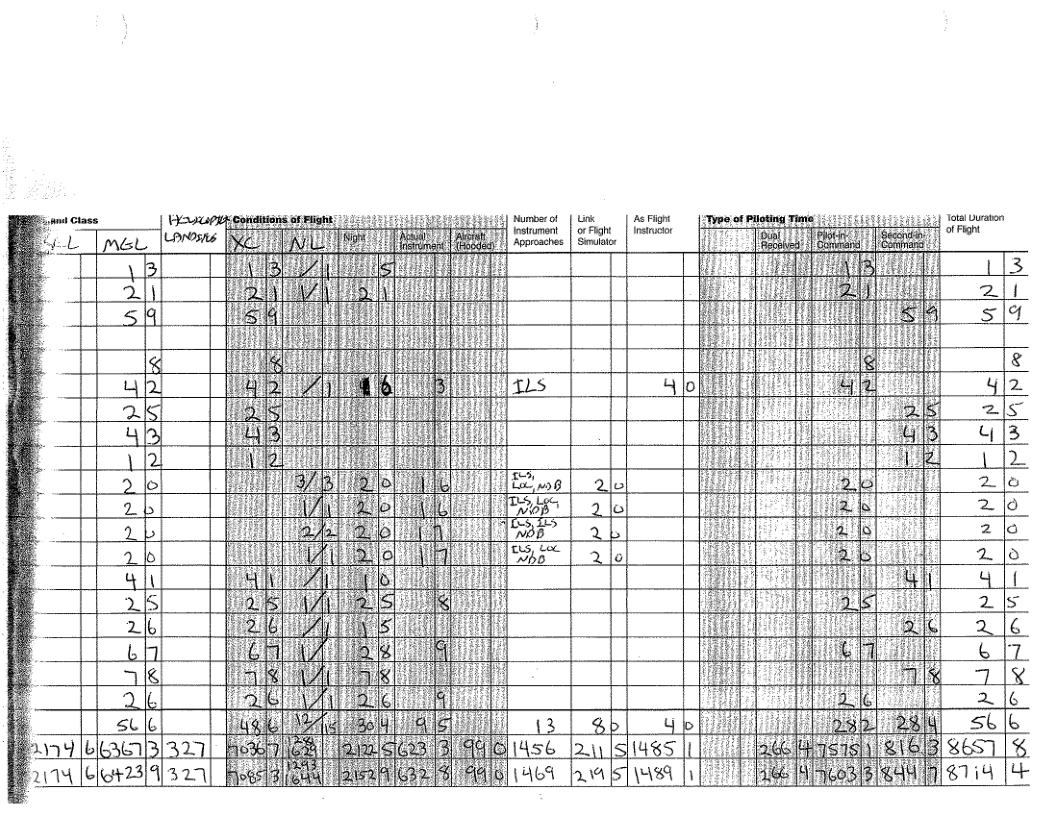 and Class Conditions of Flight Number of Instrument Approaches Link or Flight Simulator As Flight Instructor Type of Piloting Time Total Duration of Flight
MGL LANDINGS XC NL Night Actual Instrument Aircraft (Hooded) Dual Received Pilot-in-Command Second-in-Command
1 3 1 3 /1 5 1 3 1 3
2 1 2 1 1/1 2 1 2 1 2 1
5 9 5 9 5 9 5 9
8 8 8 8
4 2 4 2 /1 1 6 3 ILS 4 0 4 2 4 2
2 5 2 5 2 5 2 5
4 3 4 3 4 3 4 3
1 2 1 2 1 2 1 2
2 0 3/3 2 0 1 6 ILS, LOC, NDB 2 0 2 0 2 0
2 0 1/1 2 0 1 6 ILS, LOC, NDB 2 0 2 0 2 0
2 0 2/2 2 0 1 7 ILS, ILS NDB 2 0 2 0 2 0
2 0 1/1 2 0 1 7 ILS, LOC NDB 2 0 2 0 2 0
4 1 4 1 /1 1 0 4 1 4 1
2 5 2 5 1/1 2 5 8 2 5 2 5
2 6 2 6 /1 1 5 2 6 2 6
6 7 6 7 1/ 2 8 9 6 7 6 7
7 8 7 8 1/1 7 8 7 8 7 8
2 6 2 6 1/1 2 6 9 2 6 2 6
56 6 48 6 12/15 30 4 9 5 13 8 0 4 0 28 2 28 4 56 6
2174 6 6367 3 327 7036 7 1281 629 2122 5 623 3 99 0 1456 211 5 1485 1 266 4 7575 1 816 3 8657 8
2174 6 6423 9 327 7085 3 1293 644 2152 9 632 8 99 0 1469 219 5 1489 1 266 4 7603 3 844 7 8714 4